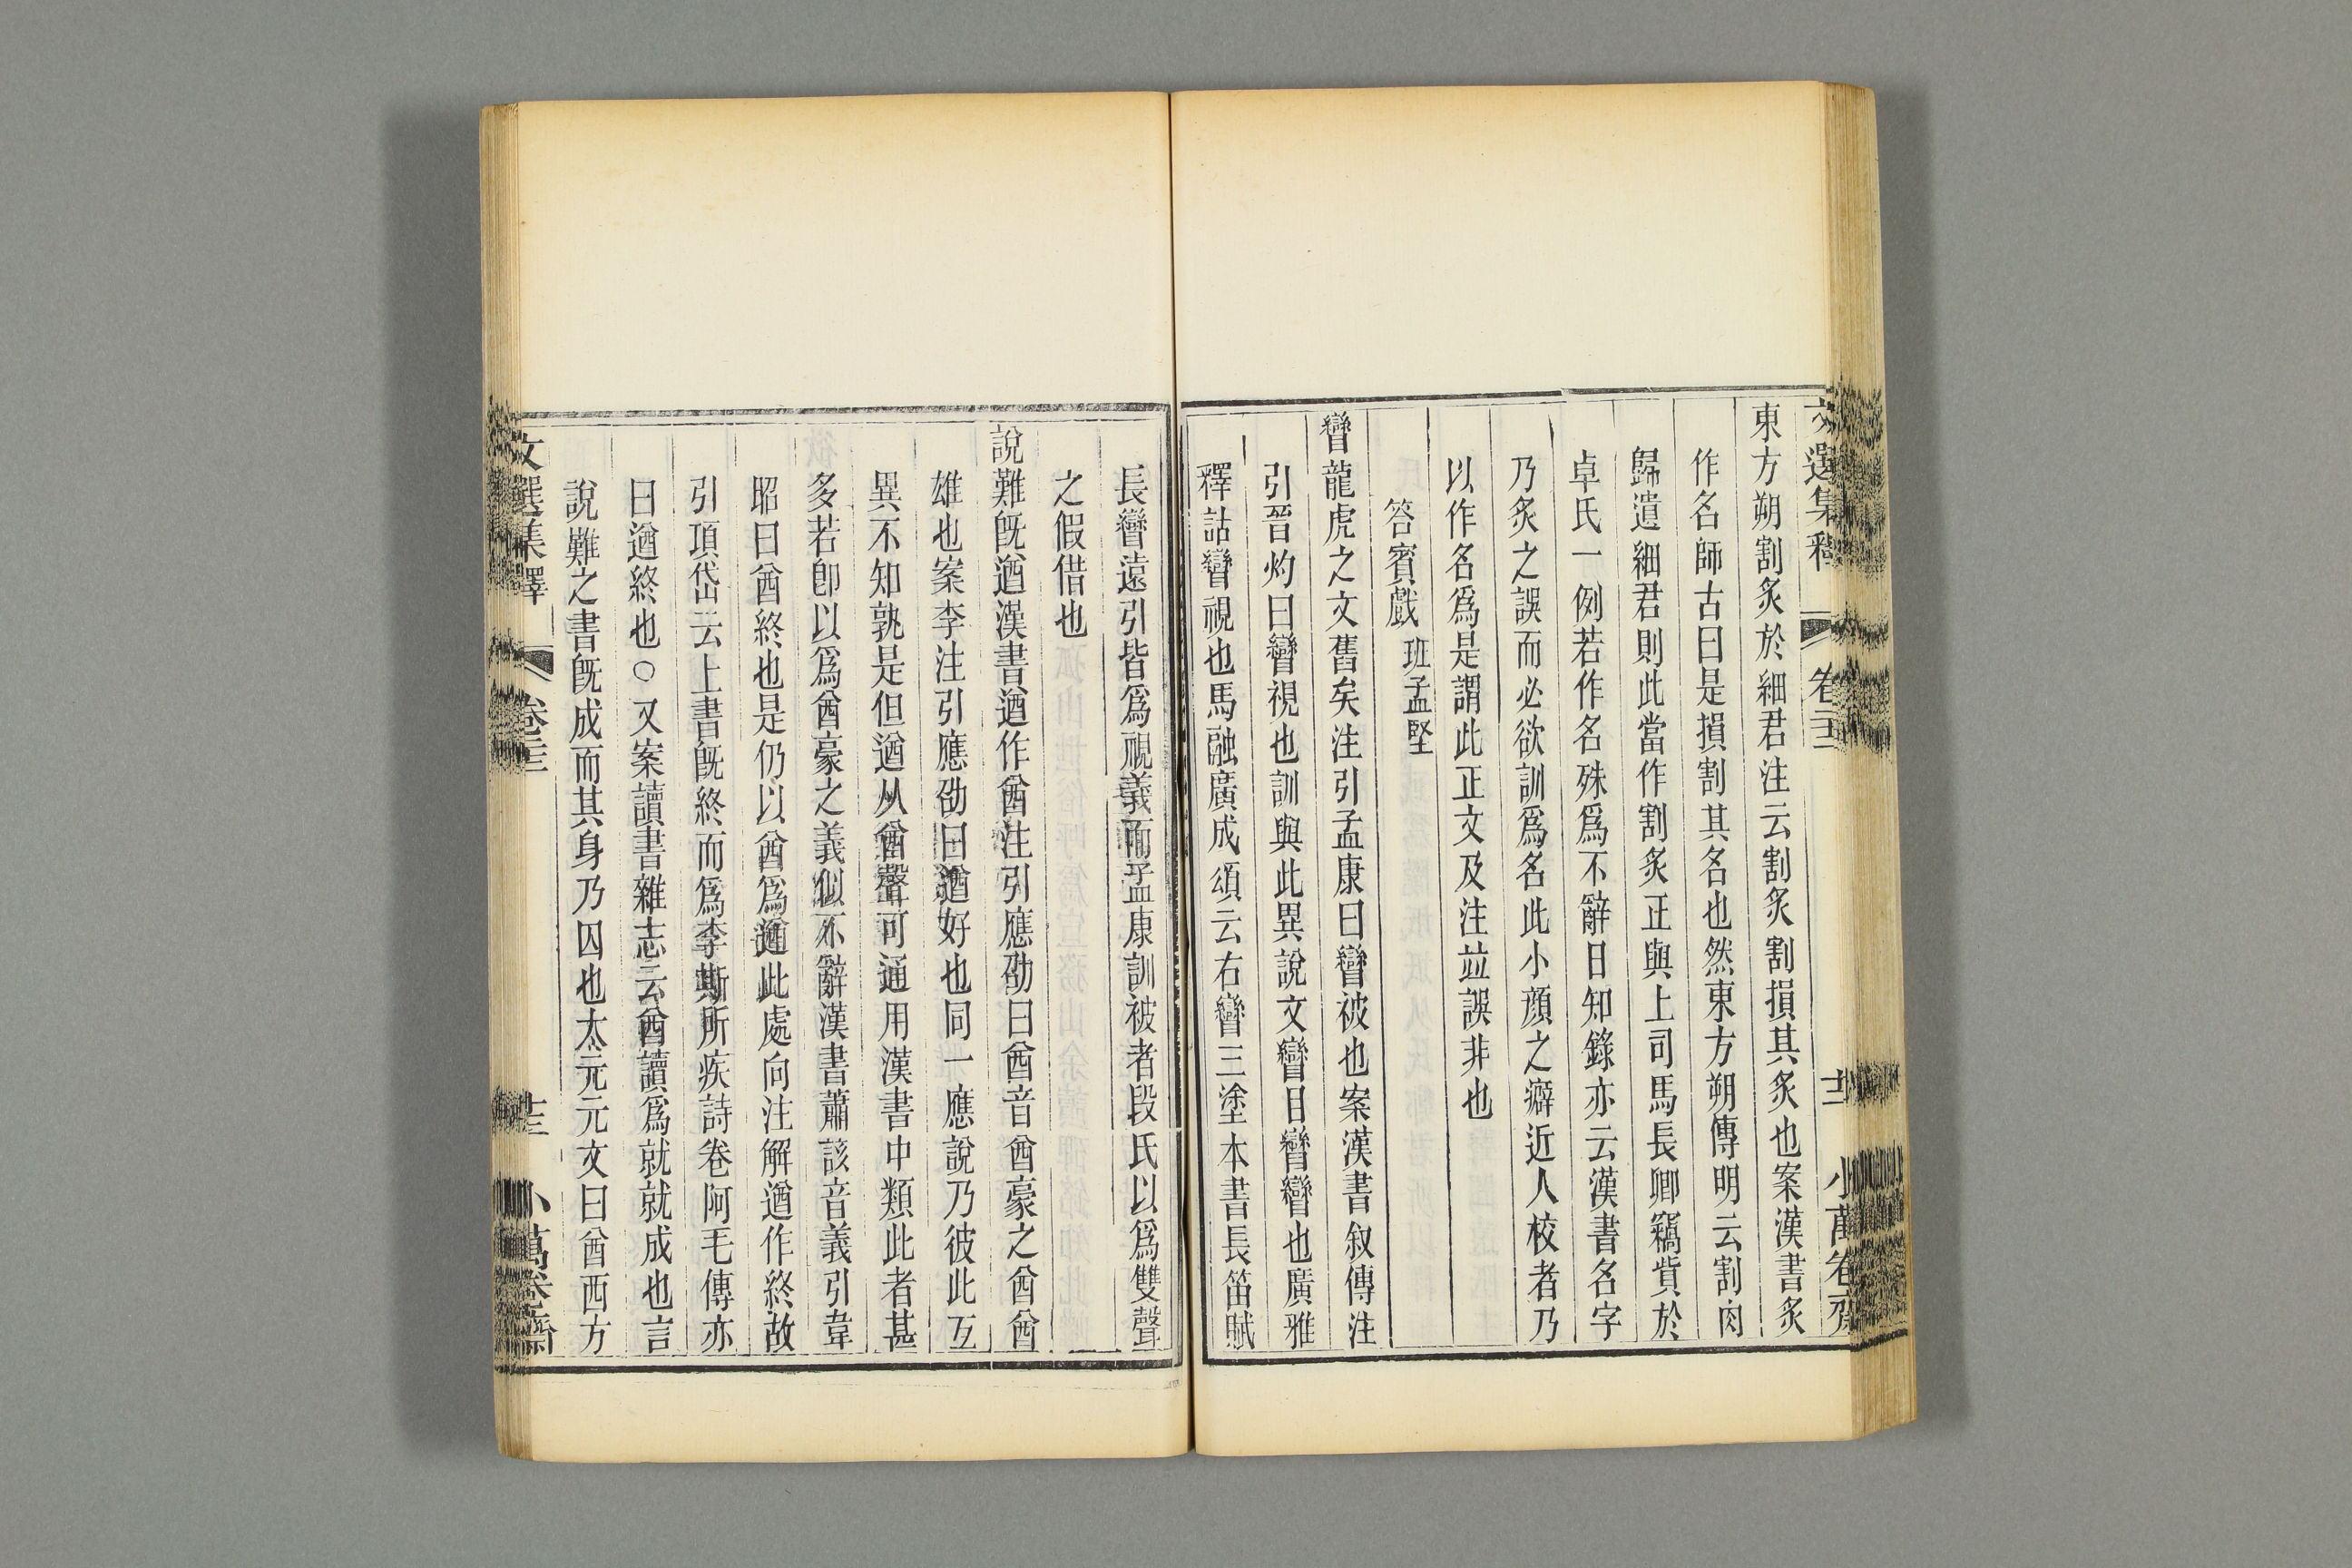 文選集釋 卷二十二 十二 小萬卷齋
東方朔割炙於細君注云割炙割損其炙也案漢書炙
作名師古曰是損割其名也然東方朔傳明云割肉
歸遺細君則此當作割炙正與上司馬長卿竊貲於
卓氏一例若作名殊爲不辭日知錄亦云漢書名字
乃炙之誤而必欲訓爲名此小顏之癖近人校者乃
以作名爲是謂此正文及注竝誤非也
答賓戲 班孟堅
矕龍虎之文舊矣注引孟康曰矕被也案漢書叙傳注
引晉灼曰矕視也訓與此異說文矕目矕矕也廣雅
釋詁矕視也馬融廣成頌云右矕三塗本書長笛賦
長矕遠引皆爲視義而孟康訓被者段氏以爲雙聲
之假借也
說難旣遒漢書遒作酋注引應劭曰酋音酋豪之酋酋
雄也案李注引應劭曰遒好也同一應說乃彼此互
異不知孰是但遒从酋聲可通用漢書中類此者甚
多若卽以爲酋豪之義似不辭漢書蕭該音義引韋
昭曰酋終也是仍以酋爲遒此處向注解遒作終故
引項岱云上書旣終而爲李斯所疾詩卷阿毛傳亦
曰遒終也○又案讀書雜志云酋讀爲就就成也言
說難之書旣成而其身乃囚也太元元文曰酋西方
文選集釋 卷二十二 十三 小萬卷齋